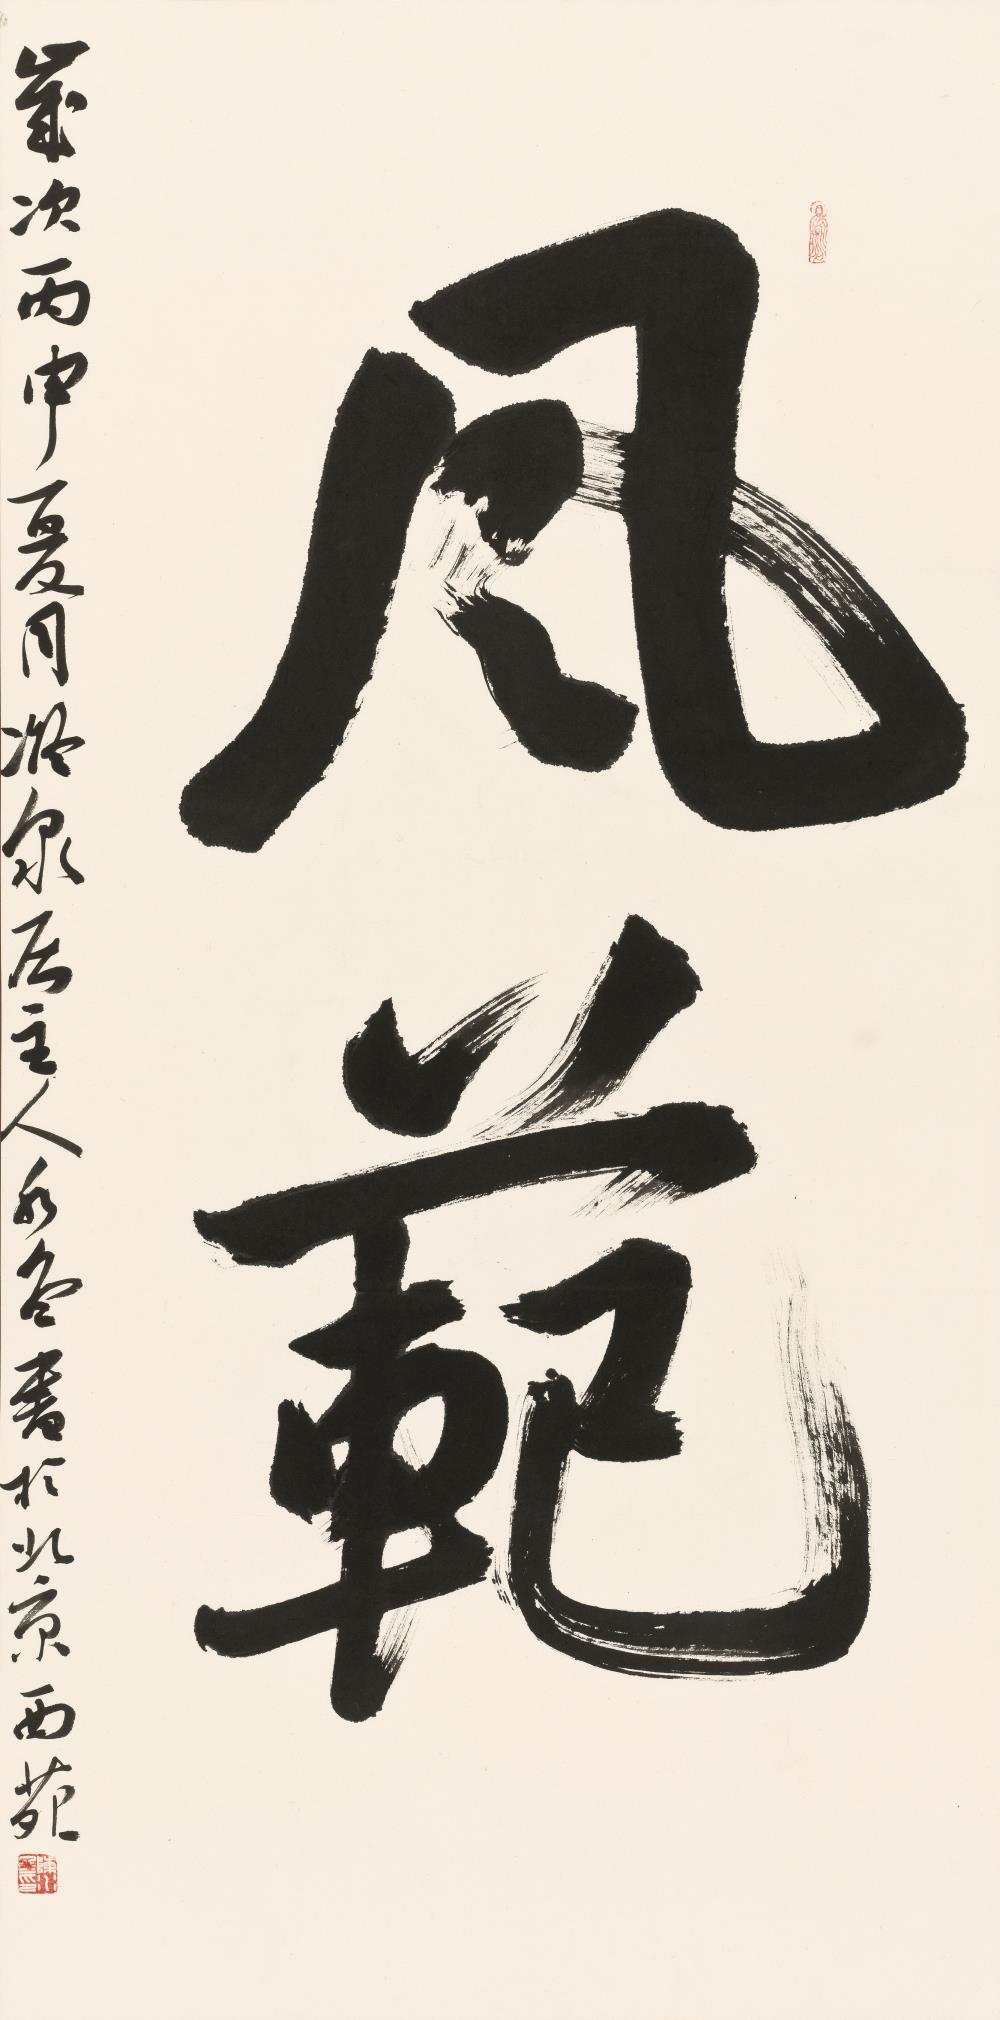 風範
歲次丙申夏月凝泉居主人永書於北京西苑